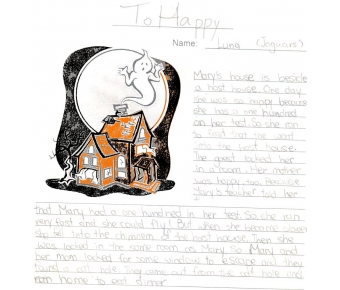 To Happy
Name: Luna (Jaguars)
Mary's house is beside
a host house. One day
she was so happy because
she was a one hundred
on her test. So she ran
to fast that she went
into the host house.
The ghost locked her
in a room. Her mother
was happy too because
teacher told her
that Mary had a one hundred in her test. So she ran
very fast and she could fly! But when she became down
she fell into the chimney of the host house. Then she
was locked in the same room as Mary. So Mary and
her mom looked for some window to escape and they
found a cat hole. They came out from the cat hole and
ran home to eat dinner.